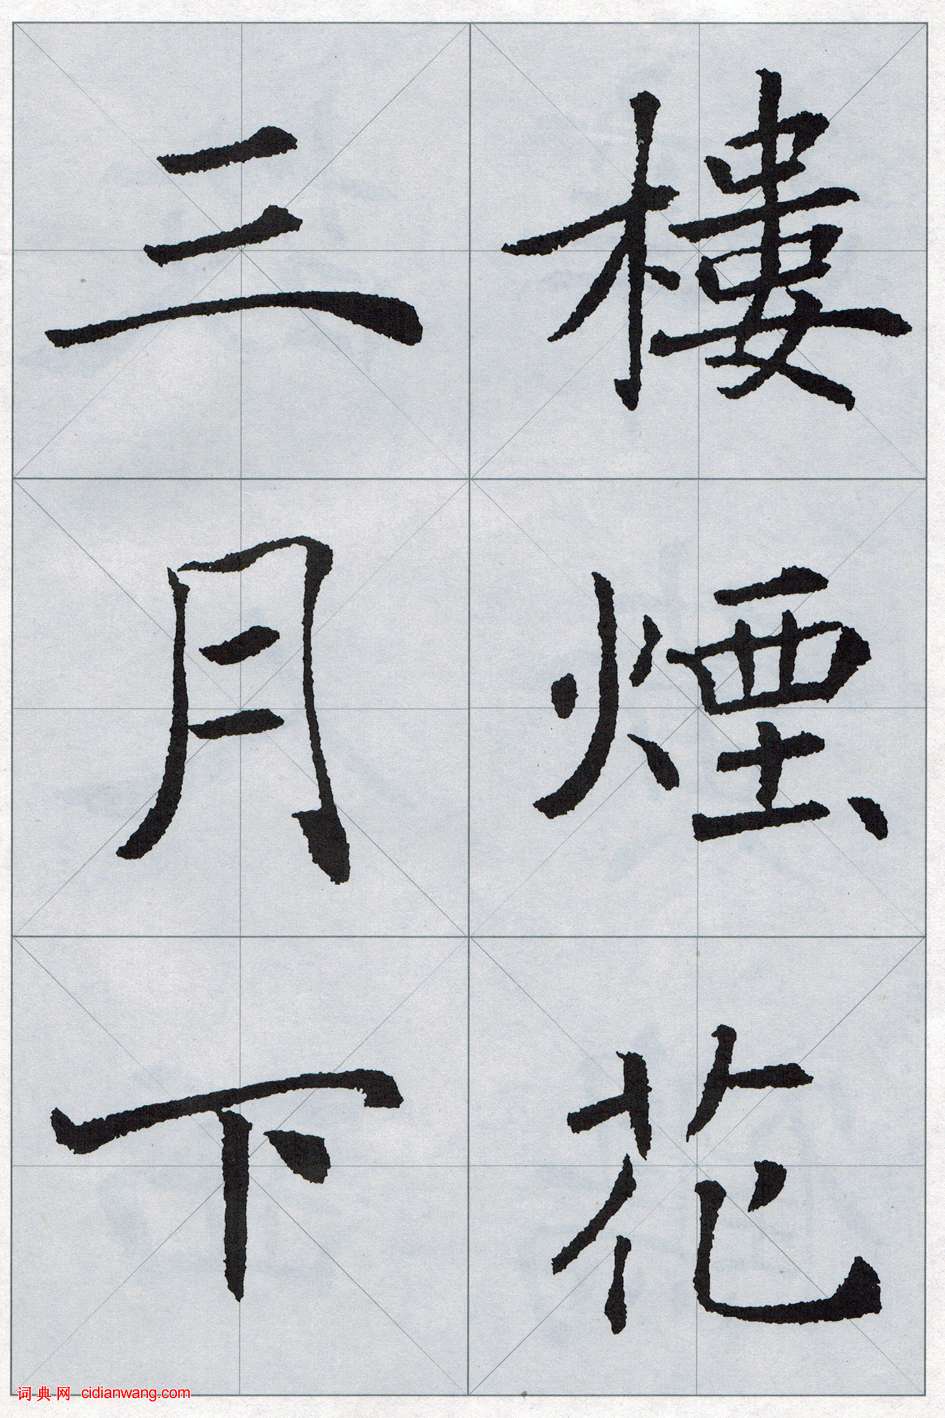 樓煙花
三月下
词典网 cidianwang.com